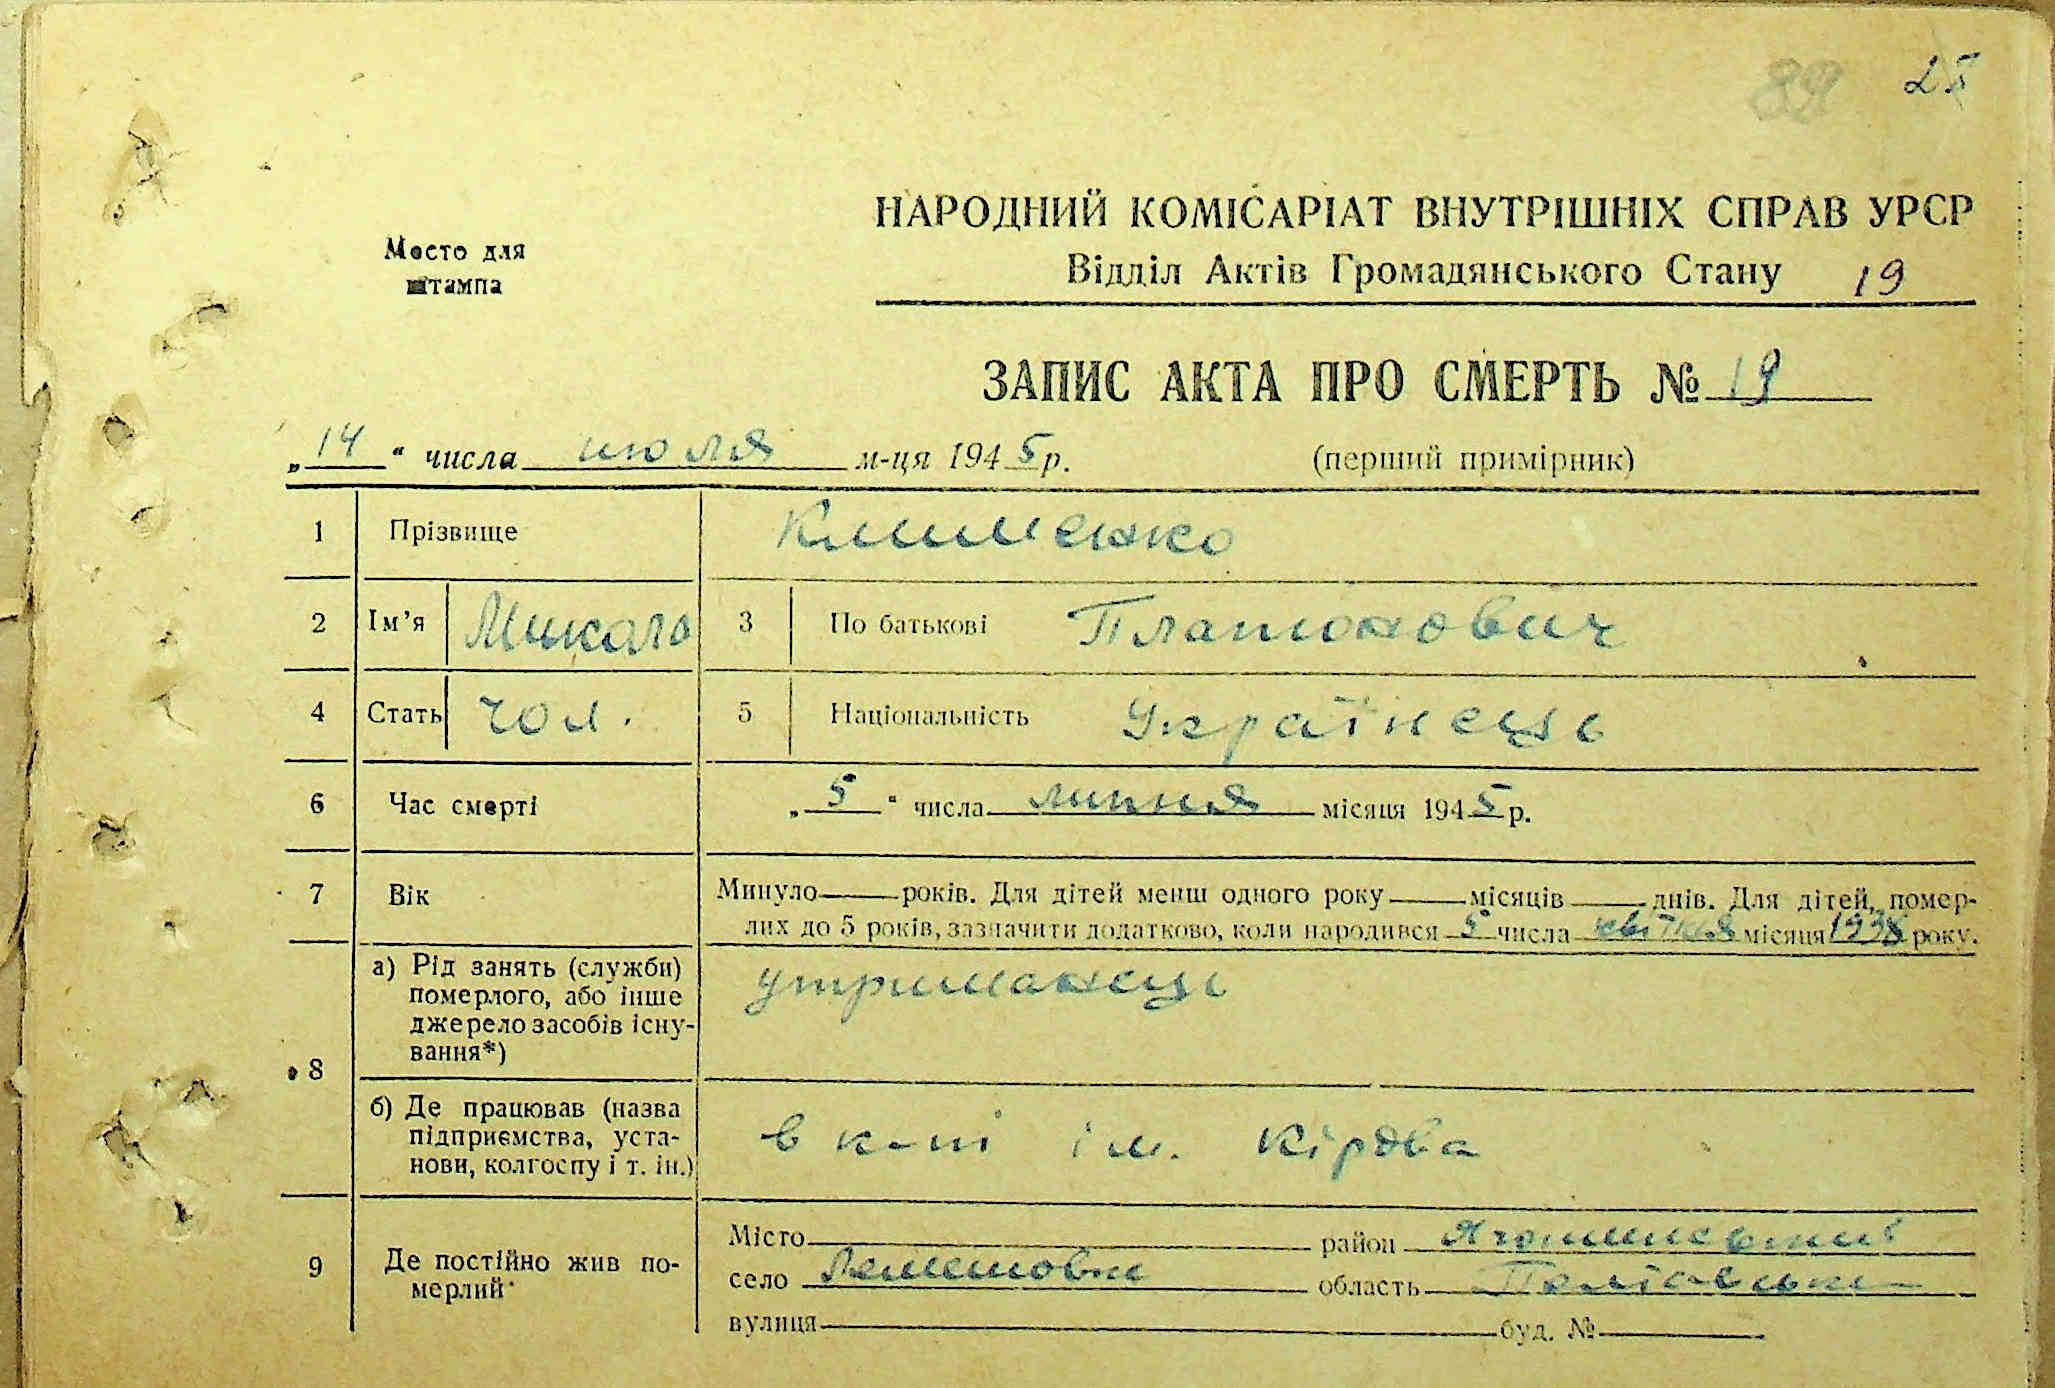 89 25
Место для
штампа
НАРОДНИЙ КОМІСАРІАТ ВНУТРІШНІХ СПРАВ УРСР
Відділ Актів Громадянського Стану 19
ЗАПИС АКТА ПРО СМЕРТЬ № 19
„14“ числа июля м-ця 1945 р. (перший примірник)
1 Прізвище Клименко
2 Ім’я Микола 3 По батькові Платонович
4 Стать чол. 5 Національність Українець
6 Час смерті „5“ числа липня місяця 1945 р.
7 Вік Минуло — років. Для дітей менш одного року — місяців — днів. Для дітей, помер-
лих до 5 років, зазначити додатково, коли народився 5 числа квітня місяця 1938 року.
8 а) Рід занять (служби)
померлого, або інше
джерело засобів існу-
вання*)
утриманець
б) Де працював (назва
підприємства, уста-
нови, колгоспу і т. ін.)
в к-пі ім. Кірова
9 Де постійно жив по-
мерлий
Місто район
село область Полтавська
вулиця буд. №